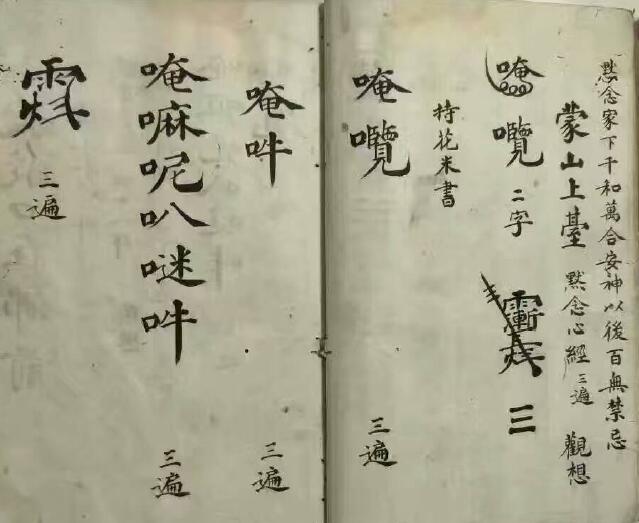 默念家下千和萬合安神以後百無禁忌
蒙山上臺 默念心經三遍 觀想
唵㘕二字 三
持花米書
唵㘕 三遍
唵吽 三遍
唵嘛呢叭㘝吽 三遍
三遍